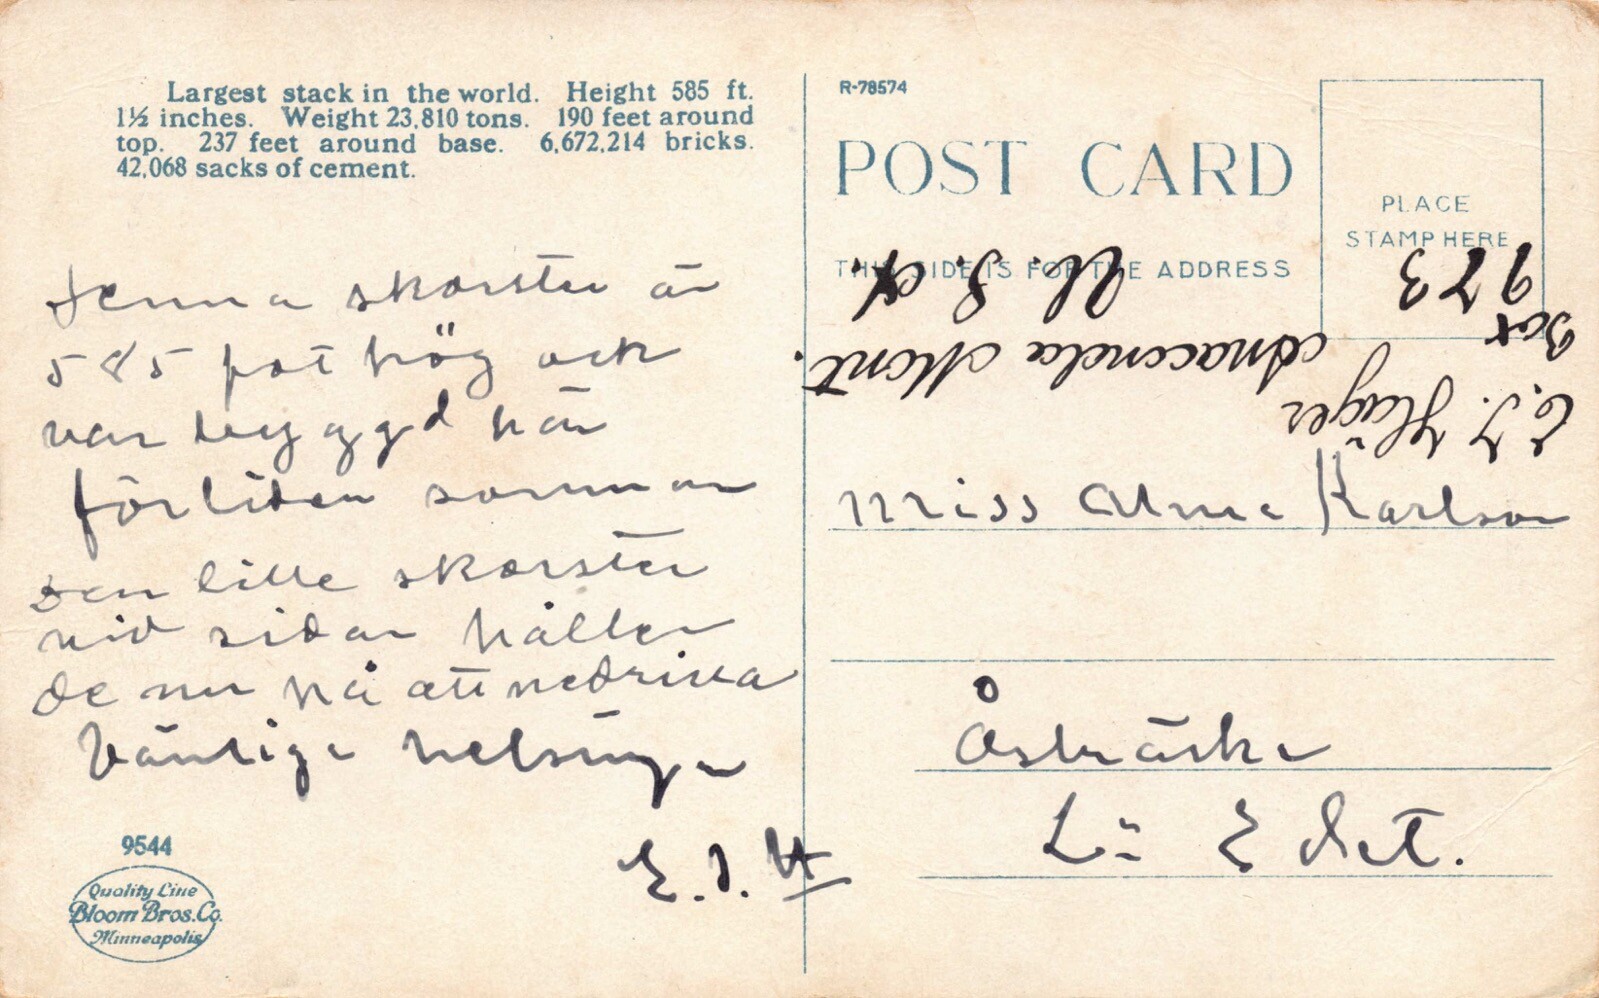 Largest stack in the world. Height 585 ft.
1½ inches. Weight 23,810 tons. 190 feet around
top. 237 feet around base. 6,672,214 bricks.
42,068 sacks of cement.
Denna skorsten är
585 fot hög och
var byggd här
förliden sommar
Den lille skorsten
vid sidan håller
de nu på att nedriva
Vänliga helsningar
E.J.H
9544
Quality Line
Bloom Bros. Co.
Minneapolis
R-78574
POST CARD
THIS SIDE IS FOR THE ADDRESS
PLACE
STAMP HERE
E.J. Häger
Box 973
Anaconda Mont.
U.S.A.
Miss Alma Karlson
Åsbräcka
L:a Edet.